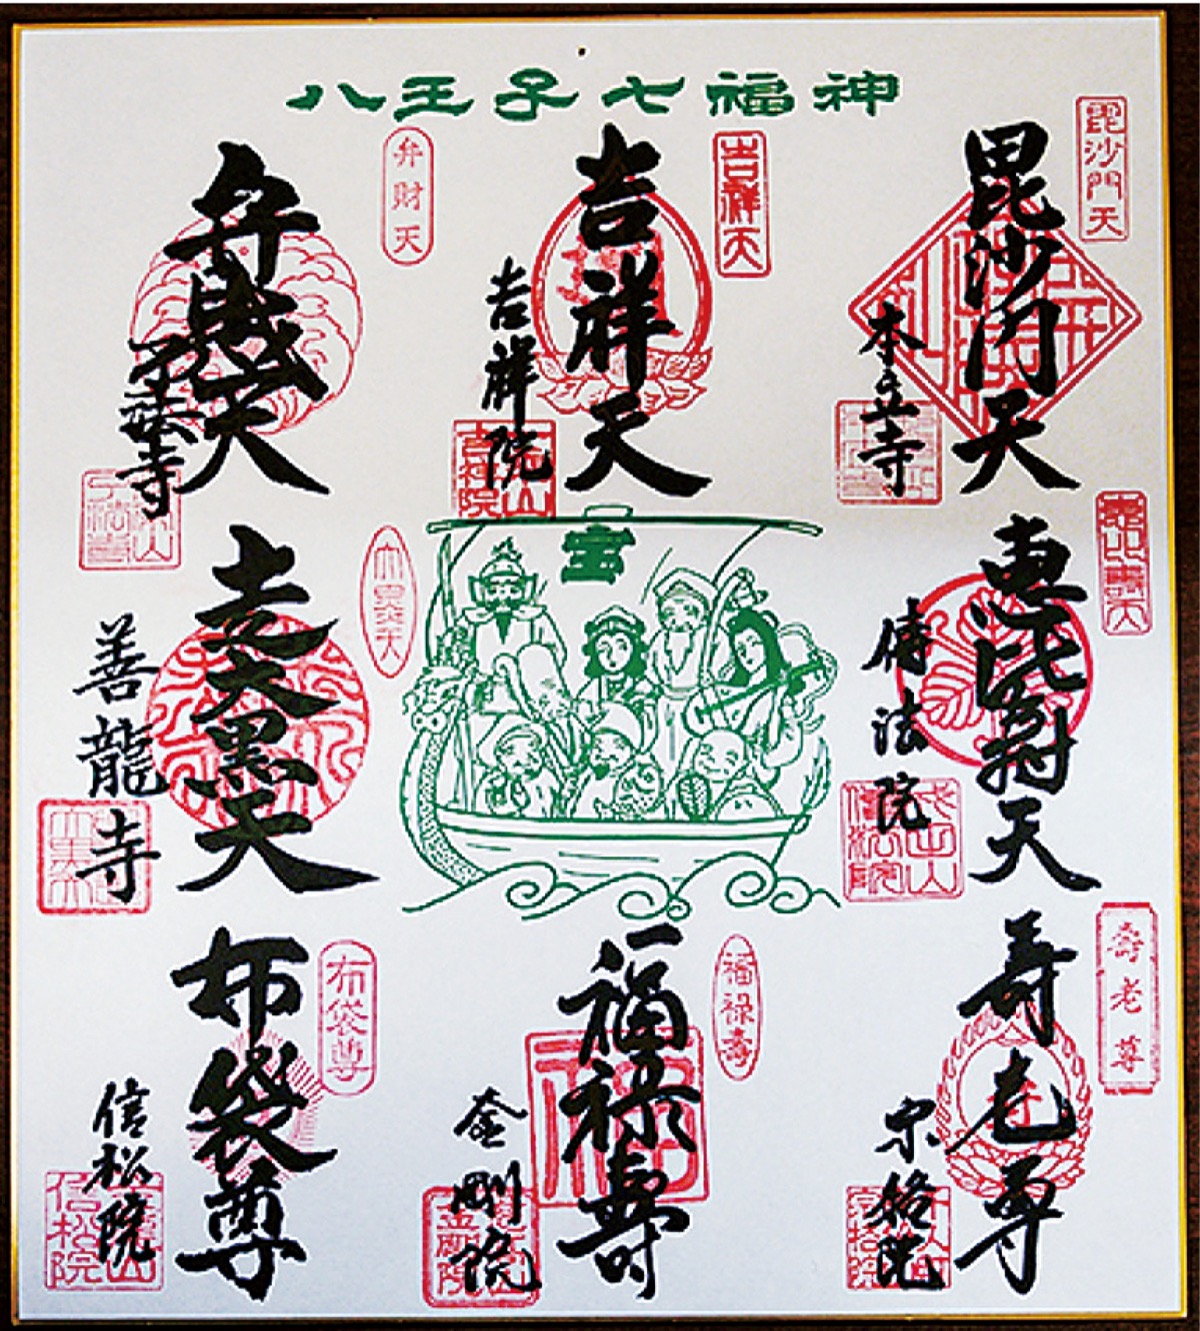 八王子七福神
毘沙門天
毘沙門天
本立寺
吉祥天
吉祥天
吉祥院
吉祥院
弁財天
弁財天
了法寺
恵比寿天
傳法院
傳法院
宝
大黒天
走大黒天
善龍寺
壽老尊
寿老尊
宗格院
宗格院
福禄壽
福禄寿
福
金剛院
金剛院
布袋尊
布袋尊
信松院
信松院